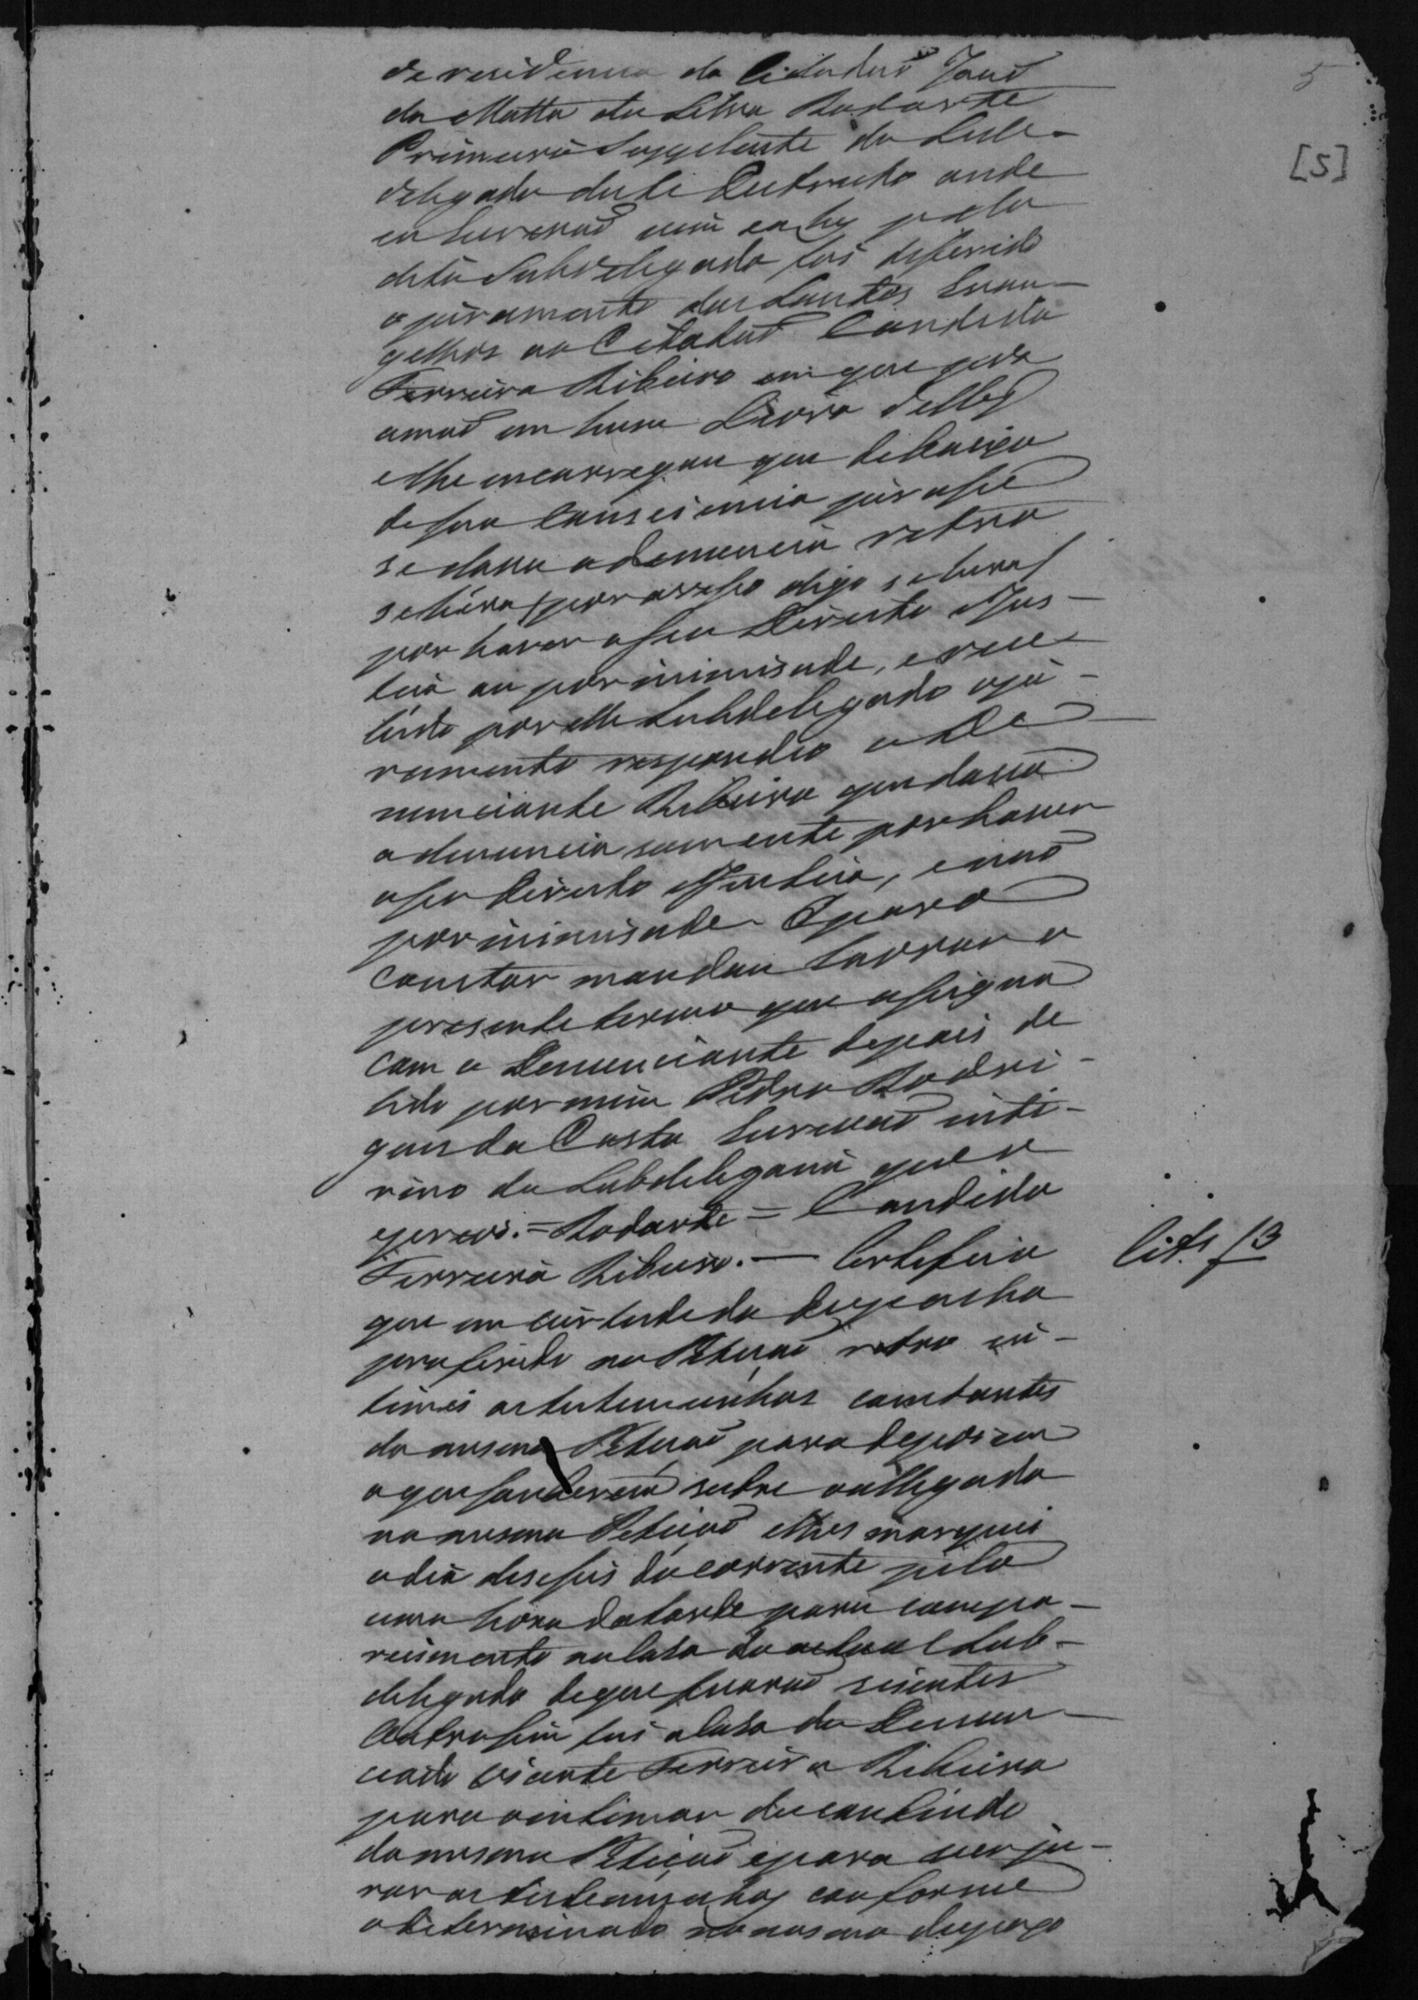 5
[5]
de residencia do Cidadaõ Joaõ
da Matta da Silva Rodarte
Primeiro Supplente do Sub-
delegado deste Destricto onde
eu Escrivaõ vim e ahy pelo
dito Subdelegado foi deferido
o juramento dos Santos Evan-
gelhos ao Cidadaõ Candido
Ferreira Ribeiro em que pos a
maõ em hum Livro delles
e lhe encarregou que debaixo
de sua Consciencia jurasse
se dava a denuncia retro
digo se hera
por haver a seu Direito e Jus-
tiça ou por inimisade, e rece-
bido por elle Subdelegado o ju-
ramento respondeo o De
nunciante Ribeiro que dava
a denuncia somente por haver
a seu Direito e Justiça, e naõ
por inimisade. E para
constar mandou lavrar o
presente termo que assigna
com o Denunciante depois de
lido por mim Pedro Rodri-
gues da Costa Escrivaõ inte-
rino da Subdelegacia que o
escrevi. = Rodarte = Candido
Ferreira Ribeiro. — Certifico
que em virtude do Despacho
proferido na Petiçaõ retro in-
timei as testemunhas constantes
da mesma Petiçaõ para deporem
o que souberem sobre o allegado
na mesma Petiçaõ e lhes marquei
o dia deseseis do corrente pela
uma hora da tarde para compa-
recimento na Casa do actual Sub-
delegado de que ficaraõ scientes
Outrosim fui a Casa do Denun-
ciado Vicente Ferreira Ribeiro
para o intimar do contiudo
da mesma Petiçaõ e para ver ju-
rar as testemunhas conforme
o determinado no mesmo despaxo